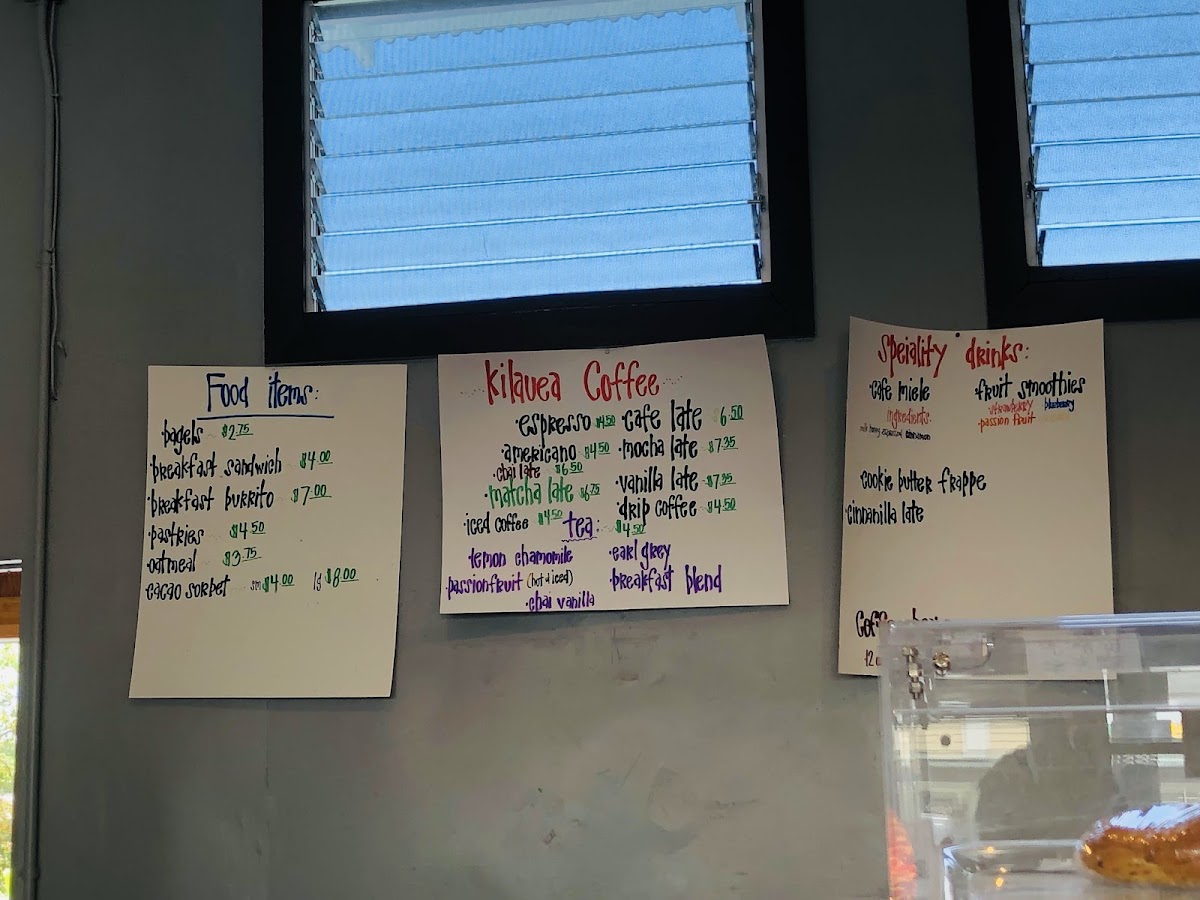 Food items:
·bagels $2.75
·breakfast sandwich $4.00
·breakfast burrito $7.00
·pastries $4.50
·oatmeal $3.75
·cacao sorbet sm $4.00 lg $8.00
Kilauea Coffee
·espresso $4.50 ·cafe late 6.50
·americano $4.50 ·mocha late $7.35
·chai late $6.50
·matcha late $6.75 ·vanilla late $7.35
·iced coffee $4.50 ·drip coffee $4.50
tea: $4.50
·lemon chamomile ·earl grey
·passionfruit (hot & iced) ·breakfast blend
·chai vanilla
Speiality drinks:
·cafe miele ·fruit smoothies
ingredients: strawberry blueberry
milk honey espresso cinnamon passion fruit
cookie butter frappe
·cinnanilla late
12